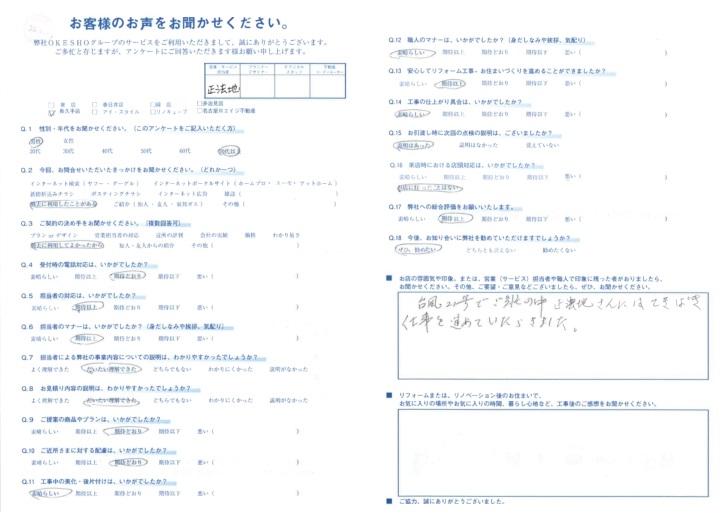 お客様のお声をお聞かせください。
弊社ＯＫＥＳＨＯグループのサービスをご利用いただきまして、誠にありがとうございます。
ご多忙と存じますが、アンケートにご回答いただきます様お願い申し上げます。
正法地
□ 春日井店
久久手店 □ アイ・スタイル □リノキューブ □名古屋ロエイジ不動産
Q.1 性別・年代をお聞かせください。（このアンケートをご記入いただく方）
男性 女性
20代 30代 40代 50代 60代 70代以上
Q.2 今回、お問合せいただいたきっかけをお聞かせください。（どれか一つ）
インターネット検索（ヤフー・グーグル） インターネットポータルサイト（ホームプロ・スーモ・アットホーム）
新聞折込みチラシ ポスティングチラシ インターネット広告 雑誌（ ）
過去に利用したことがある ご紹介（知人・友人・東邦ガス） その他（ ）
Q.3 ご契約の決め手をお聞かせください。（複数回答可）
プラン or デザイン 営業担当者の対応 近所の評判 会社の実績 価格 わかり易さ
過去に利用してよかったから 知人・友人からの紹介 その他（ ）
Q.4 受付時の電話対応は、いかがでしたか？
素晴らしい 期待以上 期待どおり 期待以下 悪い（ ）
Q.5 担当者の対応は、いかがでしたか？
素晴らしい 期待以上 期待どおり 期待以下 悪い（ ）
Q.6 担当者のマナーは、いかがでしたか？（身だしなみや挨拶、気配り）
素晴らしい 期待以上 期待どおり 期待以下 悪い（ ）
Q.7 担当者による弊社の事業内容についての説明は、わかりやすかったでしょうか？
よく理解できた だいたい理解できた どちらでもない わかりにくかった 説明がなかった
Q.8 お見積り内容の説明は、わかりやすかったでしょうか？
よく理解できた だいたい理解できた どちらでもない わかりにくかった 説明がなかった
Q.9 ご提案の商品やプランは、いかがでしたか？
素晴らしい 期待以上 期待どおり 期待以下 悪い（ ）
Q.10 ご近所さまに対する配慮は、いかがでしたか？
素晴らしい 期待以上 期待どおり 期待以下 悪い（ ）
Q.11 工事中の美化・後片付けは、いかがでしたか？
素晴らしい 期待以上 期待どおり 期待以下 悪い（ ）
Q.12 職人のマナーは、いかがでしたか？（身だしなみや挨拶、気配り）
素晴らしい 期待以上 期待どおり 期待以下 悪い（ ）
Q.13 安心してリフォーム工事・お住まいづくりを進めることができましたか？
素晴らしい 期待以上 期待どおり 期待以下 悪い（ ）
Q.14 工事の仕上がり具合は、いかがでしたか？
素晴らしい 期待以上 期待どおり 期待以下 悪い（ ）
Q.15 お引渡し時に次回の点検の説明は、ございましたか？
説明はあった 説明はなかった 覚えていない
Q.16 来店時における店頭対応は、いかがでしたか？
素晴らしい 期待以上 期待どおり 期待以下 悪い（ ）
Q.17 弊社への総合評価をお願いいたします。
素晴らしい 期待以上 期待どおり 期待以下 悪い（ ）
Q.18 今後、お知り合いに弊社を勧めていただけますでしょうか？
ぜひ、勧めたい どちらとも言えない 勧めたくない
■ お店の雰囲気や印象。または、営業（サービス）担当者や職人で印象に残った者がおりましたら、
お聞かせください。その他、ご要望・ご意見などございましたら、ぜひ、お聞かせください。
台風21号でご多忙の中 正法地さんには てきぱき
仕事を進めていただきました。
■ リフォームまたは、リノベーション後のお住まいで、
お気に入りの場所やお気に入りの時間、暮らし心地など、工事後のご感想をお聞かせください。
■ ご協力、誠にありがとうございました。